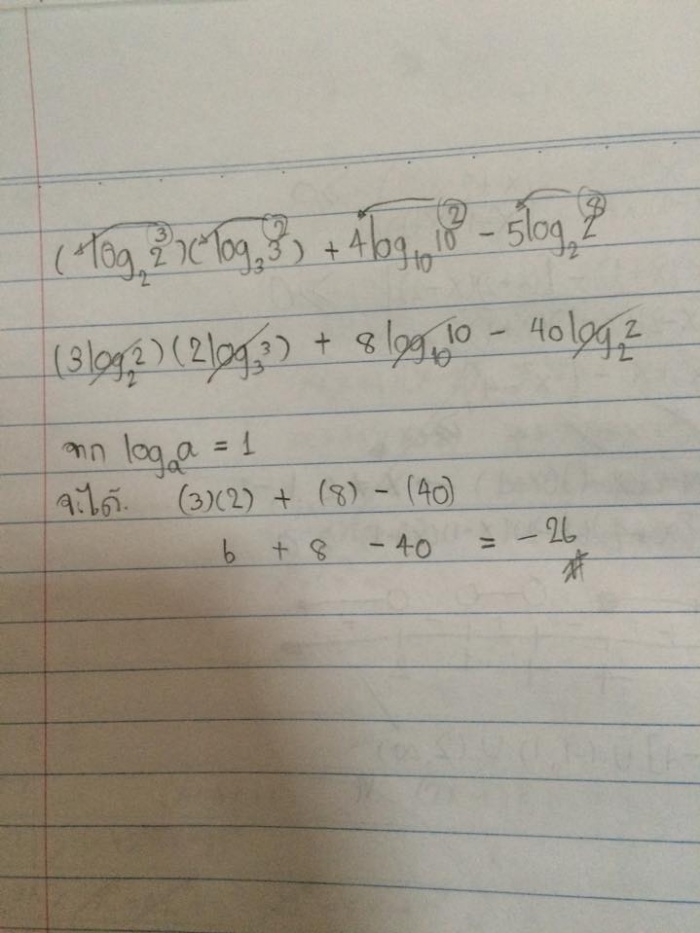 (log₂2³)(log₃3²) + 4log₁₀10² - 5log₂2⁸
(3log₂2)(2log₃3) + 8log₁₀10 - 40log₂2
จาก logₐa = 1
จะได้. (3)(2) + (8) - (40)
6 + 8 - 40 = -26 #